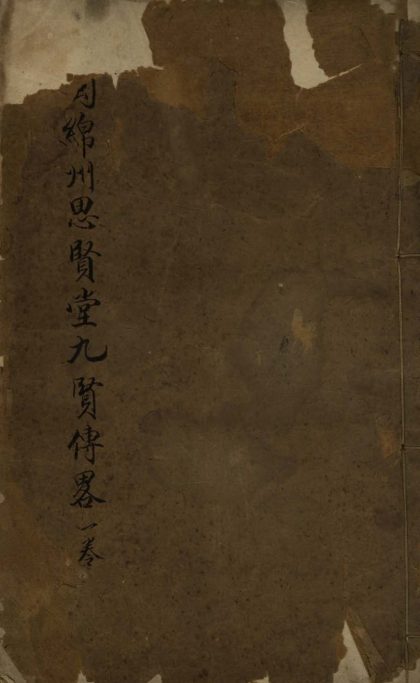 綿州思賢堂九賢傳畧一卷